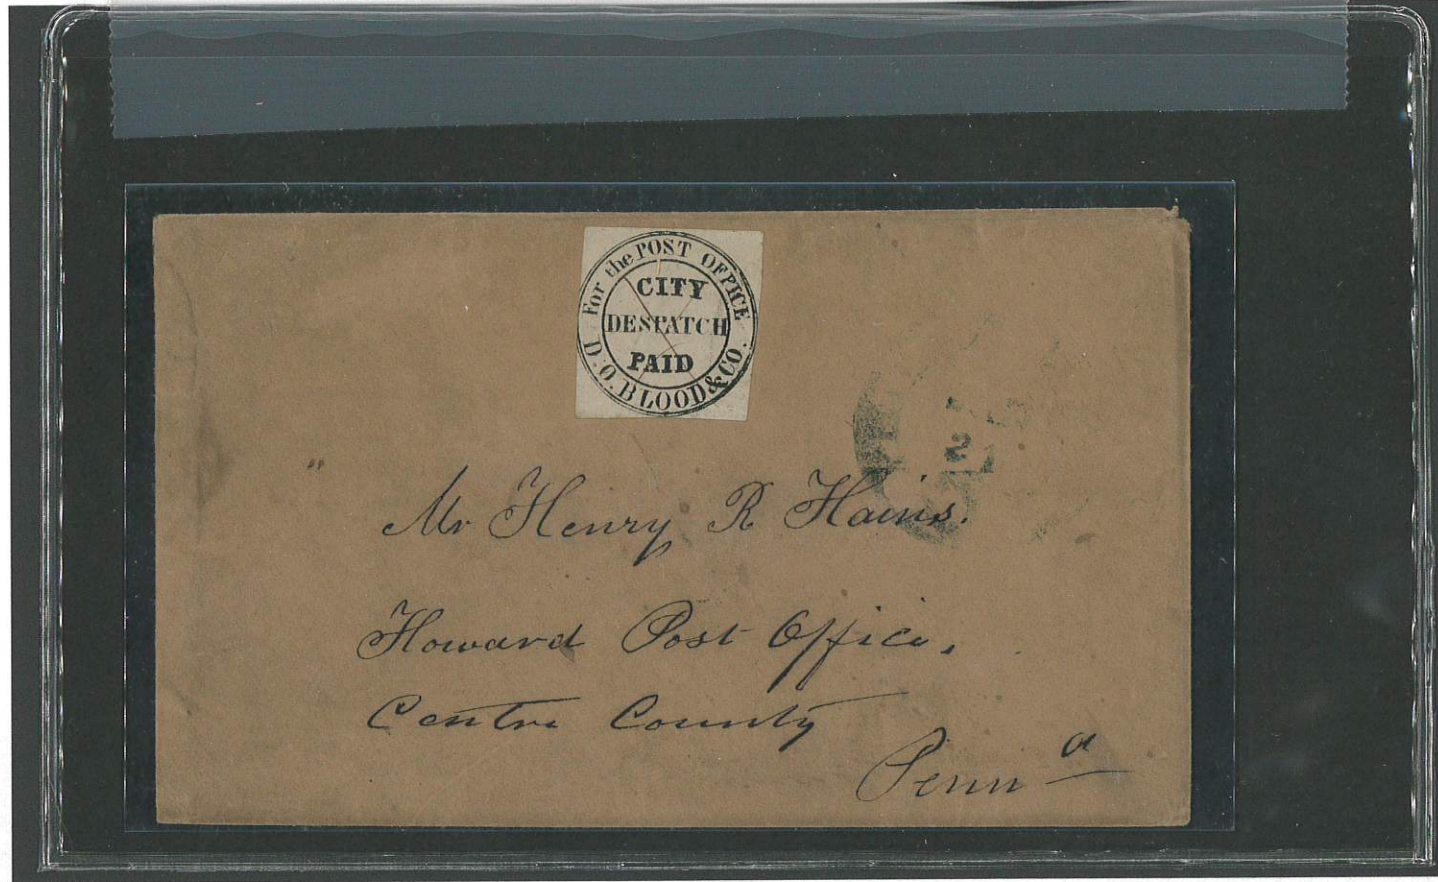 For the POST OFFICE
CITY
DESPATCH
PAID
D.O. BLOOD & CO.
Mr Henry R Hains.
Howard Post Office,
Centre County
Penn a